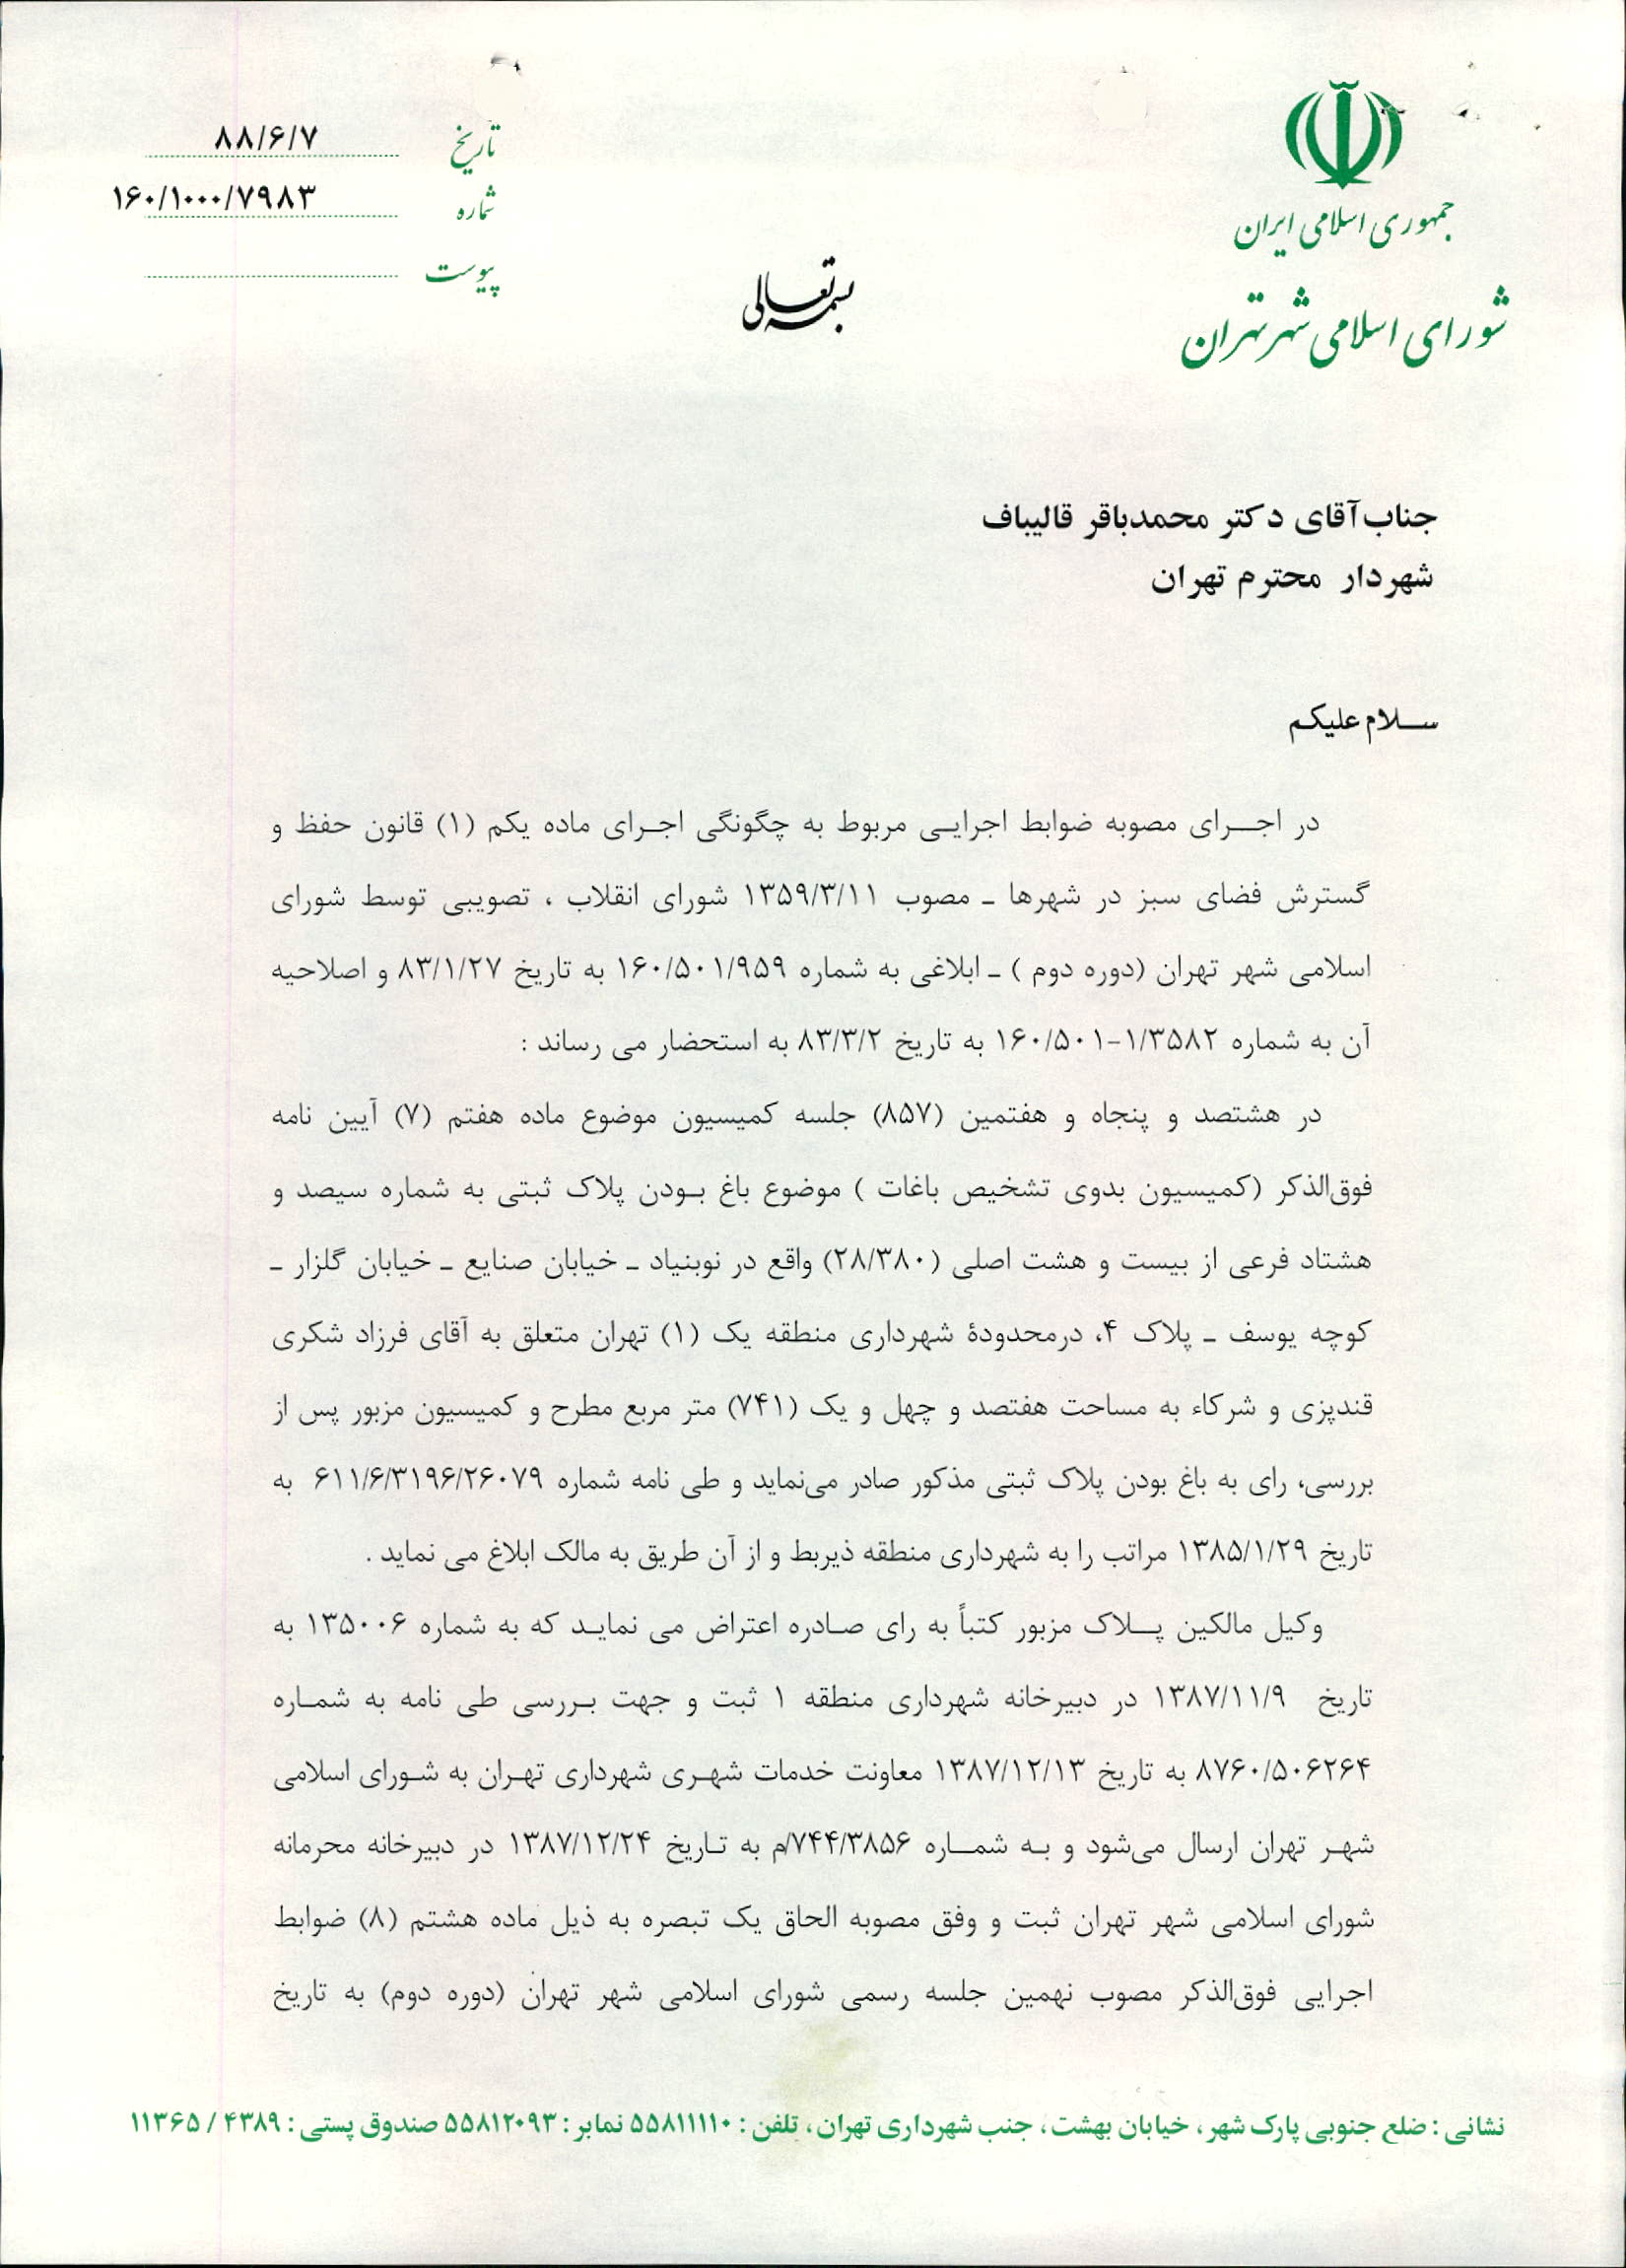 جمهوری اسلامی ایران
شورای اسلامی شهر تهران
تاریخ ۸۸/۶/۷
شماره ۱۶۰/۱۰۰۰/۷۹۸۳
پیوست
بسمه تعالی
جناب آقای دکتر محمدباقر قالیباف
شهردار محترم تهران
سلام علیکم
در اجرای مصوبه ضوابط اجرایی مربوط به چگونگی اجرای ماده یکم (۱) قانون حفظ و
گسترش فضای سبز در شهرها ـ مصوب ۱۳۵۹/۳/۱۱ شورای انقلاب ، تصویبی توسط شورای
اسلامی شهر تهران (دوره دوم ) ـ ابلاغی به شماره ۱۶۰/۵۰۱/۹۵۹ به تاریخ ۸۳/۱/۲۷ و اصلاحیه
آن به شماره ۱/۳۵۸۲-۱۶۰/۵۰۱ به تاریخ ۸۳/۳/۲ به استحضار می رساند :
در هشتصد و پنجاه و هفتمین (۸۵۷) جلسه کمیسیون موضوع ماده هفتم (۷) آیین نامه
فوق‌الذکر (کمیسیون بدوی تشخیص باغات ) موضوع باغ بودن پلاک ثبتی به شماره سیصد و
هشتاد فرعی از بیست و هشت اصلی (۲۸/۳۸۰) واقع در نوبنیاد ـ خیابان صنایع ـ خیابان گلزار ـ
کوچه یوسف ـ پلاک ۴، درمحدودۀ شهرداری منطقه یک (۱) تهران متعلق به آقای فرزاد شکری
قندپزی و شرکاء به مساحت هفتصد و چهل و یک (۷۴۱) متر مربع مطرح و کمیسیون مزبور پس از
بررسی، رای به باغ بودن پلاک ثبتی مذکور صادر می‌نماید و طی نامه شماره ۶۱۱/۶/۳۱۹۶/۲۶۰۷۹ به
تاریخ ۱۳۸۵/۱/۲۹ مراتب را به شهرداری منطقه ذیربط و از آن طریق به مالک ابلاغ می نماید .
وکیل مالکین پلاک مزبور کتباً به رای صادره اعتراض می نماید که به شماره ۱۳۵۰۰۶ به
تاریخ ۱۳۸۷/۱۱/۹ در دبیرخانه شهرداری منطقه ۱ ثبت و جهت بررسی طی نامه به شماره
۸۷۶۰/۵۰۶۲۶۴ به تاریخ ۱۳۸۷/۱۲/۱۳ معاونت خدمات شهری شهرداری تهران به شورای اسلامی
شهر تهران ارسال می‌شود و به شماره ۷۴۴/۳۸۵۶/م به تاریخ ۱۳۸۷/۱۲/۲۴ در دبیرخانه محرمانه
شورای اسلامی شهر تهران ثبت و وفق مصوبه الحاق یک تبصره به ذیل ماده هشتم (۸) ضوابط
اجرایی فوق‌الذکر مصوب نهمین جلسه رسمی شورای اسلامی شهر تهران (دوره دوم) به تاریخ
نشانی : ضلع جنوبی پارک شهر ، خیابان بهشت ، جنب شهرداری تهران ، تلفن : ۵۵۸۱۱۱۱۰ نمابر : ۵۵۸۱۲۰۹۳ صندوق پستی : ۴۳۸۹ / ۱۱۳۶۵